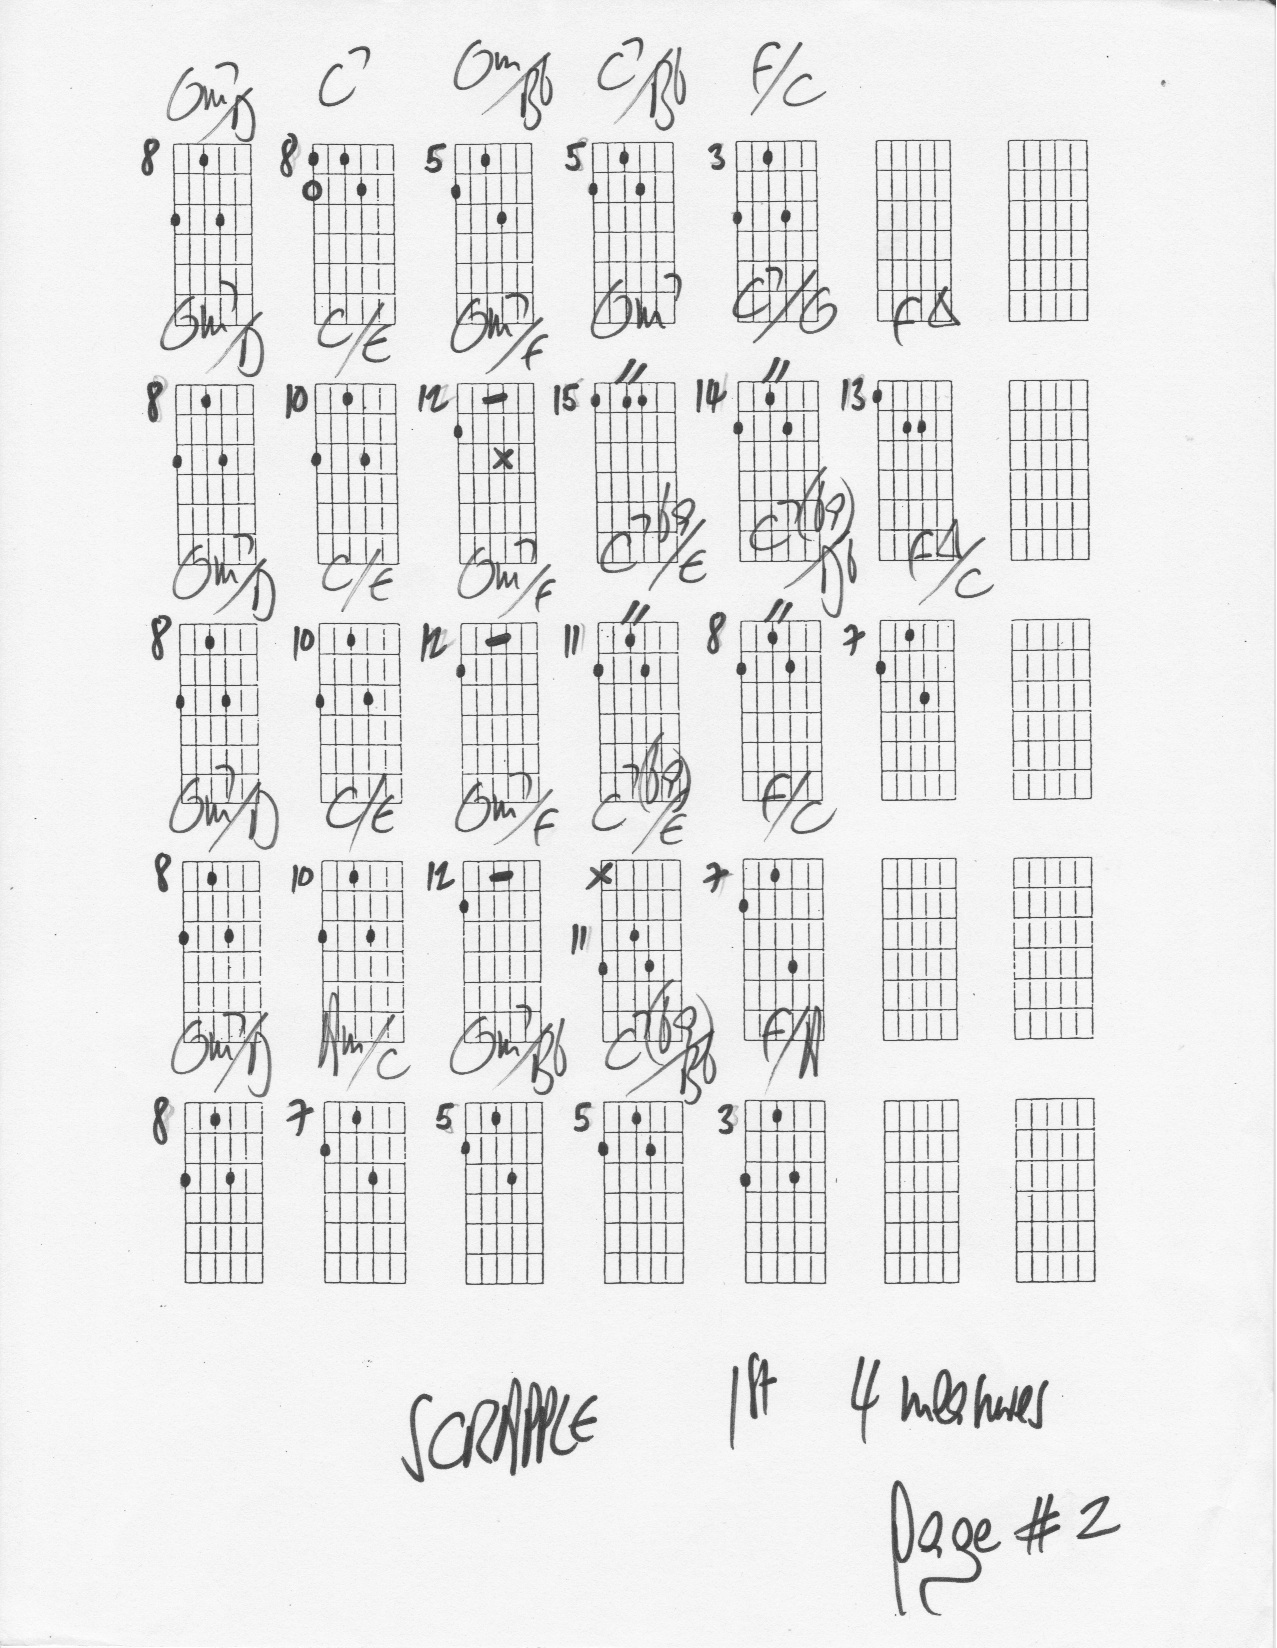 Gm7/D C7 Gm/Bb C7/Bb F/C
8 8 5 5 3
Gm7/D C/E Gm7/F Gm7 C7/G F△
8 10 12 15 // 14 // 13
Gm7/D C/E Gm7/F C7b9/E C7(b9)/Db F△/C
8 10 12 11 // 8 // 7
Gm7/D C/E Gm7/F C7(b9)/E F/C
8 10 12 11 7
Gm7/D Am/C Gm7/Bb C7(b9)/Bb F/A
8 7 5 5 3
SCRAPPLE 1st 4 measures
Page # 2